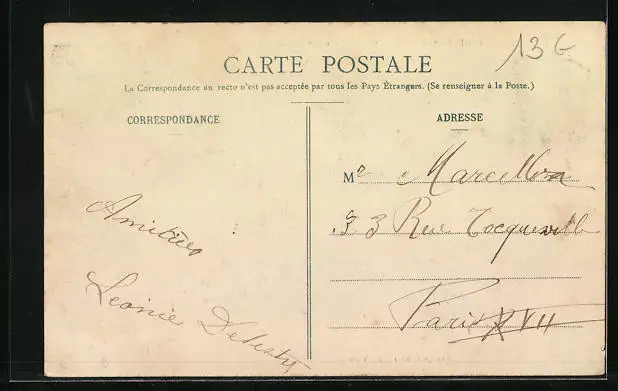 13 G
CARTE POSTALE
La Correspondance au recto n'est pas acceptée par tous les Pays Étrangers. (Se renseigner à la Poste.)
CORRESPONDANCE
Amitiés
Leonie
ADRESSE
Me
33 Rue Tocqueville
Paris XVII